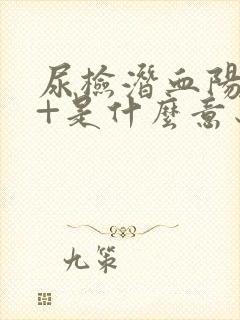 尿檢潛血陽
+是什麼意
九策